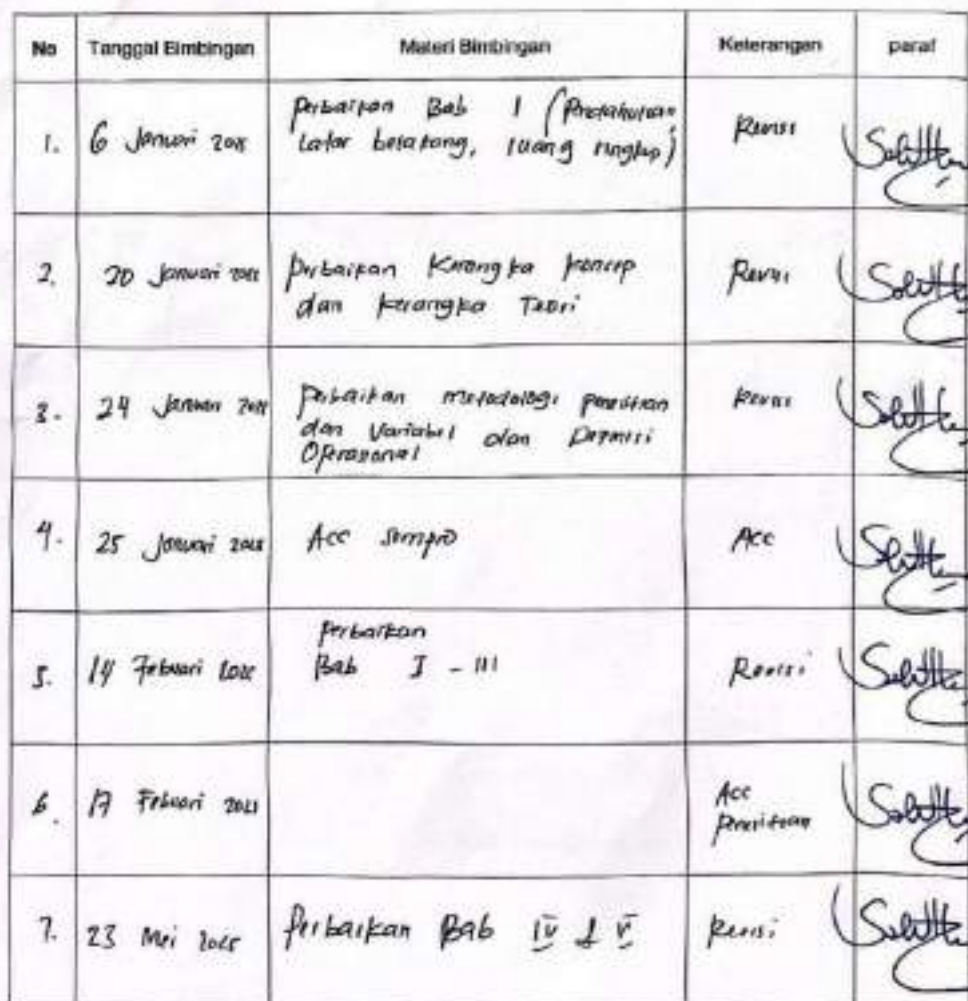 No Tanggal Bimbingan Materi Bimbingan Keterangan paraf
1. 6 Januari Perbaikan Bab I (Pendahuluan, Revisi
Latar belakang, ruang lingkup)
2. 20 Januari Perbaikan Kerangka Konsep Revisi
dan Kerangka Teori
3. 24 Januari Perbaikan metodologi penelitian Revisi
dan Variabel dan Definisi
Operasional
4. 25 Januari Acc Sempro Acc
5. 14 Februari Perbaikan Revisi
Bab I - III
6. 17 Februari Acc
Penelitian
7. 23 Mei Perbaikan Bab IV & V Revisi